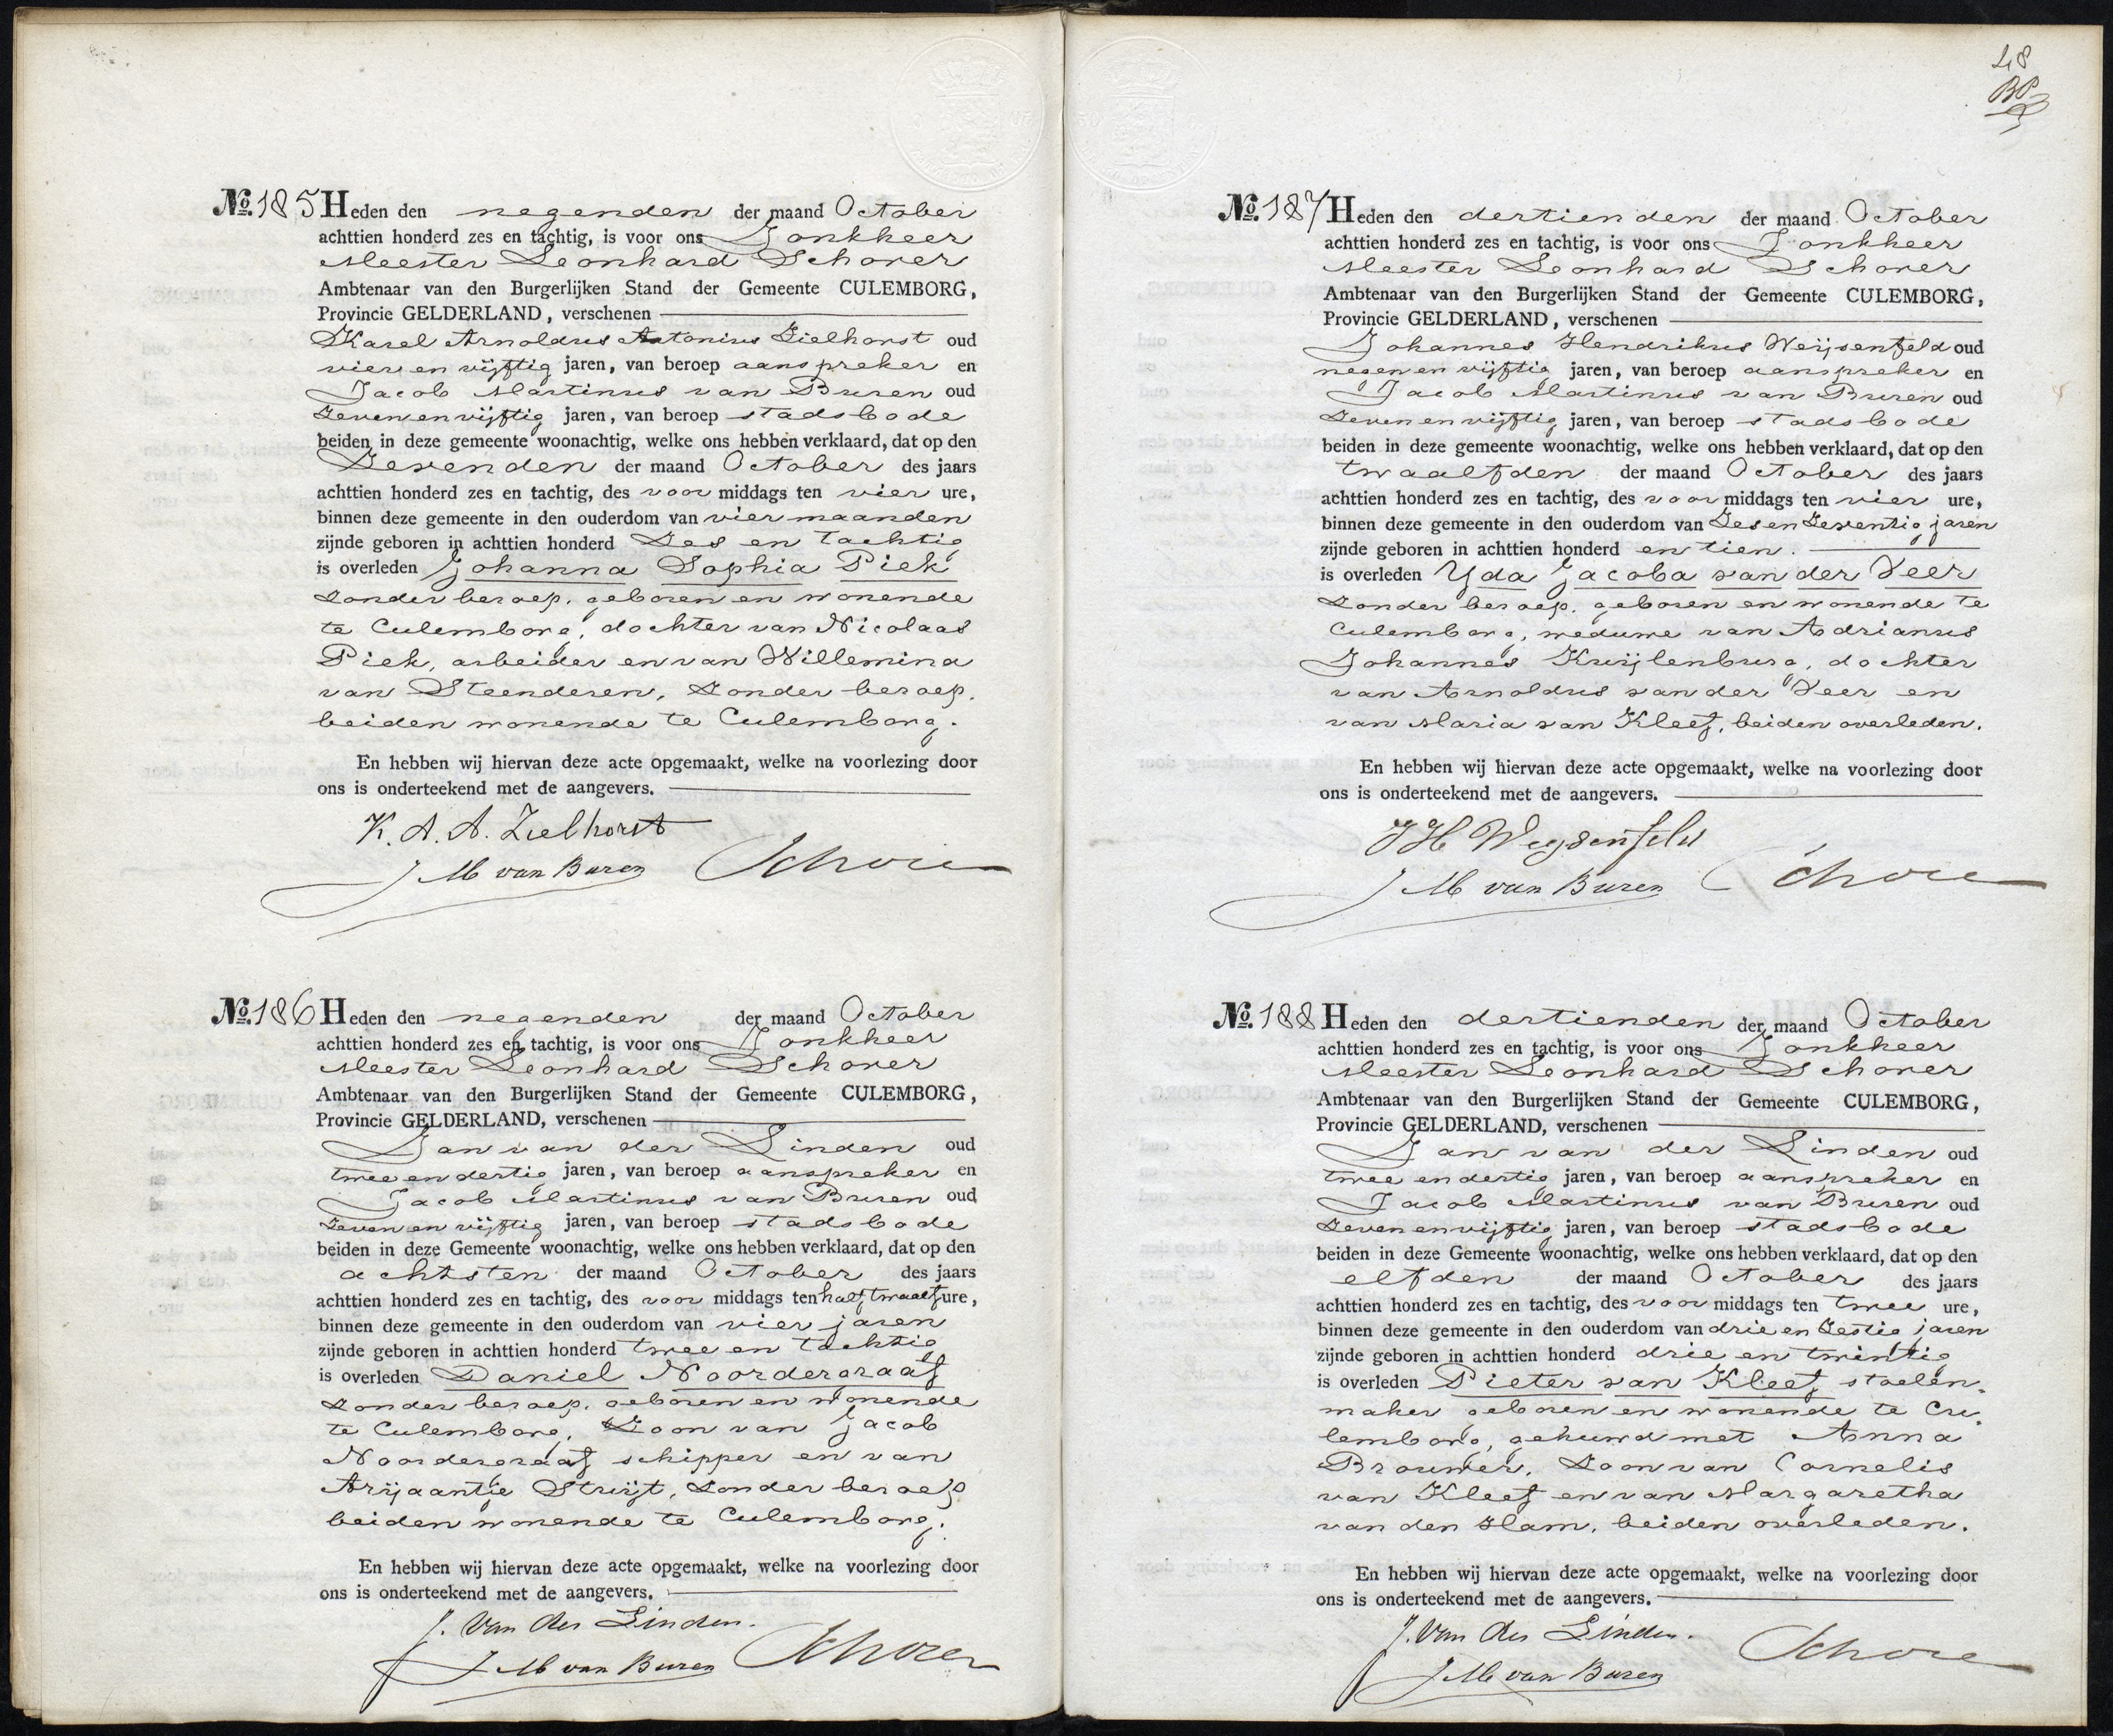 No. 185 Heden den negenden der maand October
achttien honderd zes en tachtig, is voor ons Jonkheer
Meester Leonhard Schorer
Ambtenaar van den Burgerlijken Stand der Gemeente CULEMBORG,
Provincie GELDERLAND, verschenen
Karel Arnoldus Antonius Zielhorst oud
vier en vijftig jaren, van beroep aanspreker en
Jacob Martinus van Buren oud
Zeven en vijftig jaren, van beroep stadsbode
beiden in deze gemeente woonachtig, welke ons hebben verklaard, dat op den
Zevenden der maand October des jaars
achttien honderd zes en tachtig, des voor middags ten vier ure,
binnen deze gemeente in den ouderdom van vier maanden
zijnde geboren in achttien honderd Zes en tachtig
is overleden Johanna Sophia Piek
Zonder beroep, geboren en wonende
te Culemborg, dochter van Nicolaas
Piek, arbeider en van Willemina
van Steenderen, Zonder beroep,
beiden wonende te Culemborg.
En hebben wij hiervan deze acte opgemaakt, welke na voorlezing door
ons is onderteekend met de aangevers.
K. A. A. Zielhorst
J M van Buren Schorer
No. 186 Heden den negenden der maand October
achttien honderd zes en tachtig, is voor ons Jonkheer
Meester Leonhard Schorer
Ambtenaar van den Burgerlijken Stand der Gemeente CULEMBORG,
Provincie GELDERLAND, verschenen
Jan van der Linden oud
twee en dertig jaren, van beroep aanspreker en
Jacob Martinus van Buren oud
Zeven en vijftig jaren, van beroep stadsbode
beiden in deze Gemeente woonachtig, welke ons hebben verklaard, dat op den
achtsten der maand October des jaars
achttien honderd zes en tachtig, des voor middags ten half twaalf ure,
binnen deze gemeente in den ouderdom van vier jaren
zijnde geboren in achttien honderd twee en tachtig
is overleden Daniel Noordergraaf
Zonder beroep, geboren en wonende
te Culemborg, Zoon van Jacob
Noordergraaf schipper en van
Arijaantje Struijt, Zonder beroep
beiden wonende te Culemborg.
En hebben wij hiervan deze acte opgemaakt, welke na voorlezing door
ons is onderteekend met de aangevers.
J. van der Linden.
J M van Buren Schorer
48
No. 187 Heden den dertienden der maand October
achttien honderd zes en tachtig, is voor ons Jonkheer
Meester Leonhard Schorer
Ambtenaar van den Burgerlijken Stand der Gemeente CULEMBORG,
Provincie GELDERLAND, verschenen
Johannes Hendrikus Weijsenfeld oud
negen en vijftig jaren, van beroep aanspreker en
Jacob Martinus van Buren oud
Zeven en vijftig jaren, van beroep stadsbode
beiden in deze gemeente woonachtig, welke ons hebben verklaard, dat op den
twaalfden der maand October des jaars
achttien honderd zes en tachtig, des voor middags ten vier ure,
binnen deze gemeente in den ouderdom van Zes en Zeventig jaren
zijnde geboren in achttien honderd en tien.
is overleden Yda Jacoba van der Veer
Zonder beroep, geboren en wonende te
Culemborg, weduwe van Adrianus
Johannes Kuijlenburg, dochter
van Arnoldus van der Veer en
van Maria van Kleef, beiden overleden.
En hebben wij hiervan deze acte opgemaakt, welke na voorlezing door
ons is onderteekend met de aangevers.
JH Weysenfeld
J M van Buren Schorer
No. 188 Heden den dertienden der maand October
achttien honderd zes en tachtig, is voor ons Jonkheer
Meester Leonhard Schorer
Ambtenaar van den Burgerlijken Stand der Gemeente CULEMBORG,
Provincie GELDERLAND, verschenen
Jan van der Linden oud
twee en dertig jaren, van beroep aanspreker en
Jacob Martinus van Buren oud
Zeven en vijftig jaren, van beroep stadsbode
beiden in deze Gemeente woonachtig, welke ons hebben verklaard, dat op den
elfden der maand October des jaars
achttien honderd zes en tachtig, des voor middags ten twee ure,
binnen deze gemeente in den ouderdom van drie en Zestig jaren
zijnde geboren in achttien honderd drie en twintig
is overleden Pieter van Kleef, stoelen,
maker geboren en wonende te Cu,
lemborg, gehuwd met Anna
Brouwer, Zoon van Cornelis
van Kleef en van Margaretha
van den Ham, beiden overleden.
En hebben wij hiervan deze acte opgemaakt, welke na voorlezing door
ons is onderteekend met de aangevers.
J. van der Linden.
J M van Buren Schorer